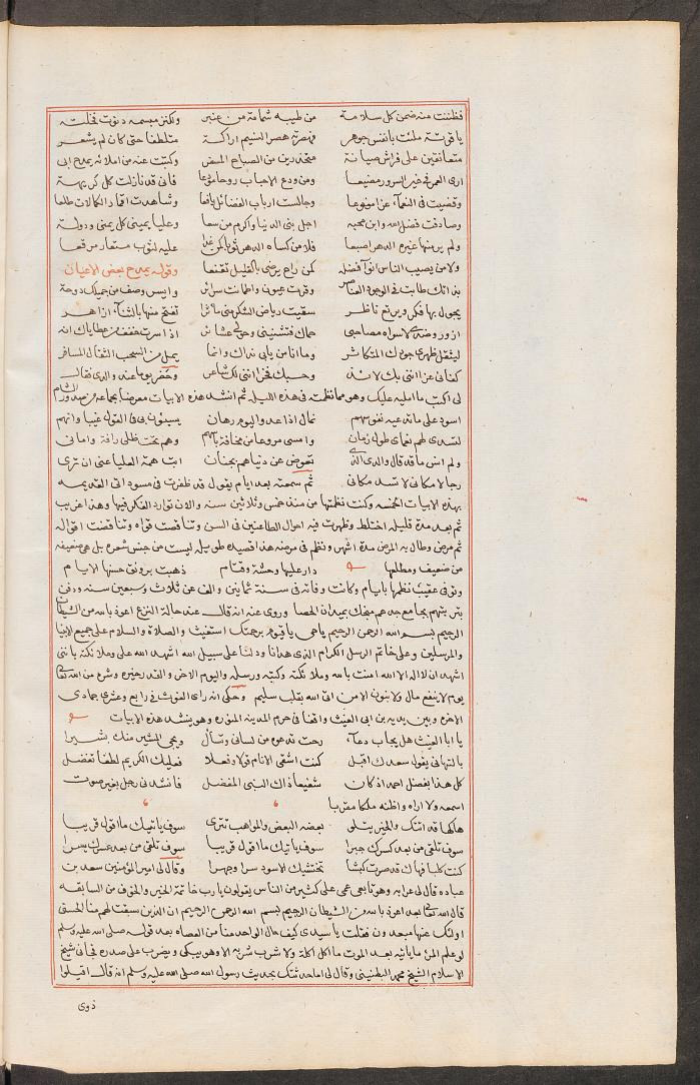 فظننت منه ضمن كل سلامة من طيبه شمامة من عنبر ولكن مبسمه دنوت فخلته
ياقوتة ملئت بانفس جوهر فهصرته هصر النسيم اراكة متلطفا حتى كان لم يشعر
متعانقين على فراش صيانة متحذرين من الصباح المسفر وكتبت عنه من املائه يمدح ابى
ارى العمر فى غير السرور مضيعا ومن ودع الاحباب روحا فانى قد نازلت كل كريهة
وقضيت فى النعمآء وجالست ارباب الفضائل يافعا وشاهدت اقمار الكمالات طلعا
وصادفت فضل الله وابن محبه اجل بنى الدنيا واكرم من سعا وعليا يمينى كل يمنى ودولة
ولم ير منها غيره الدهر اصبعا فلا من كساه الدهر ثوبا عليه لثوب مستعار مرقعا
ولا من يصيب الناس انوآ فضله كمن راح يرضى بالقليل تقنعا وقوله يمدح بعض الاعيان
بذاتك طابت فى الوجود العناصر وقرت عيون واطمأنت سرائر وايس وصف من جميلك دوحة
يجول بها فكر ويرتع ناظر سقيت رياض الشكر منى مآثرا تفتح منها بالثنآء ازاهر
ازور وضدى لاسواه مصاحبى حماك فتنثنينى وحولى عشائر اذا سرت خفف من عطاياك انه
ليثقل ظهرى جودك المتكاثر وما انا من يابى نداك وانما يمل من السحب الثقال المسافر
كفانى عزا اننى بك لائذ وحسبك فخرا اننى لك شاعر وحضر يوما عند والدى فقال
لى اكتب ما امليه عليك وهو مما نظمته فى هذه الليلة ثم انشد هذه الابيات معرضا بجماعة من صدور الشام
اسود على ما تدعيه نفوسهم نمال اذا عد واليوم رهان يسيئون بى فى القول غيبا وانهم
لتسدى لهم نعماى طول زمان وامسى مروعا من مخافة باسهم وهم تحت ظلى رافة وامانى
ولم انس ما قد قال والدى الذى تعوض عن دنياهم بجنان ابت همة العليا عنى ان ترى
رجالا مكانى لا تسد مكانى ثم سمعته بعد ايام يقول قد ظفرت فى مسوداتى القديمة
بهذه الابيات الخمسة وكنت نظمتها من منذ خمس وثلاثين سنة والان توارد الفكر فيها وهذا غريب
ثم بعد مدة قليلة اختلط وظهرت فيه احوال الطاعنين فى السن وتناقصت قواه وتناقضت اقواله
ثم مرض وطال به المرض مدة اشهر ونظم فى مرضه هذا قصيدة طويلة ليست من جنس شعره بل هى ضعيفة
من ضعيف ومطلعها دار عليها وحشة وقتام ذهبت برونق حسنها الايام
وتوفى عقيب نظمها بايام وكانت وفاته فى سنة ثمانين والف عن ثلاث وسبعين سنة ودفن
بتربتهم بجامع جدهم منجك بميدان الحصا وروى عنه انه قال عند حالة النزع اعوذ بالله من الشيطان
الرجيم بسم الله الرحمن الرحيم ياحى ياقيوم برحمتك استغيث والصلاة والسلام على جميع الانبيا
والمرسلين وعلى خاتم الرسل الكرام الذى هدانا ودلنا على سبيل الله اشهد الله على وملائكته باننى
اشهد ان لا اله الا الله امنت بالله وملائكته وكتبه ورسله واليوم الاخر والقدر خيره وشره من الله تعالى
يوم لا ينفع مال ولا بنون الا من اتى الله بقلب سليم وحكى انه راى الغوث فى رابع وعشرى جمادى
الاخره وبين يديه بن ابى الغيث واقفا فى حرم المدينة المنوره وهو ينشد هذه الابيات
يا ابا الغيث هل يجاب دعآء رحت تدعوه من لسانى وتسأل ويجى المشير منك بشيرا
بالتهانى يقول سعدك اقبل كنت اشقى الانام قولا وفعلا فعليك الكريم لطفا تفضل
كل هذا بفضل احمد اذ كان شفيعا ذاك النبى المفضل فانشدنى رجل بغير صوت
اسمعه ولا اراه واظنه ملكا مقربا
هكها قد اتتك والخير يتلو بعضه البعض والمواهب تترى سوف ياتيك ما اقول قريبا
سوف تلقى من بعد كسرك جبرا سوف ياتيك ما اقول قريبا سوف تلقى من بعد عسرك يسرا
كنت كلبا فهاك قد صرت كبشا تختشيك الاسود سرا وجهرا وقال لى امير المؤمنين سعد بن
عباده قال لى عرابه وهو تابعى عمى على كثير من الناس يقولون يا رب خاتمة الخير والخوف من السابقه
قال الله تعالى بعد اعوذ بالله من الشيطان الرجيم بسم الله الرحمن الرحيم ان الذين سبقت لهم منا الحسنى
اولئك عنها مبعدون فقلت يا سيدى كيف حال الواحد منا من العصاه بعد قوله صلى الله عليه وسلم
لو علم المرء ما ياتيه بعد الموت ما اكل اكلة ولا شرب شربه الا وهو يبكى ويضرب على صدره فجانى شيخ
الاسلام الشيخ محمد البطنينى وقال لى اما حدثتك بحديث رسول الله صلى الله عليه وسلم انه قال اقيلوا
ذوى